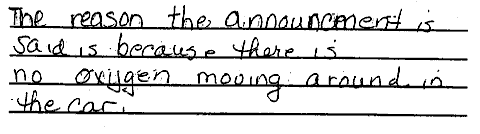 The reason the announcment is
said is because there is
no oxijgen mooing around in
the car.